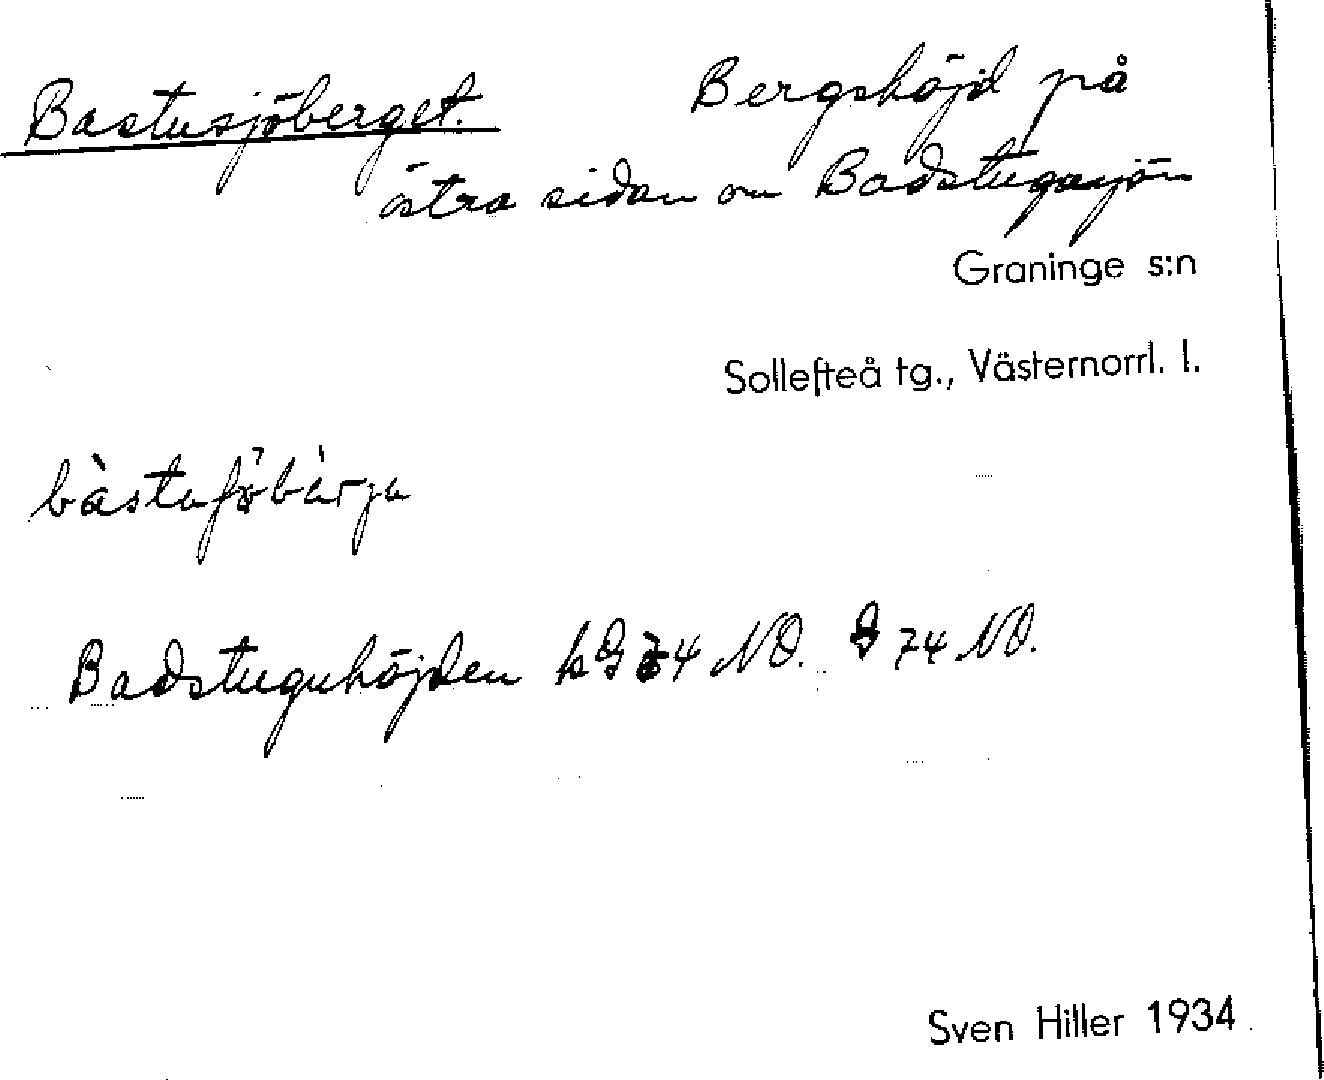 Bastusjöberget. Bergshöjd på
östra sidan om Badstugusjön
Graninge s:n
Sollefteå tg., Västernorrl. l.
Badstuguhöjden 74 NO. 74 NO.
Sven Hiller 1934